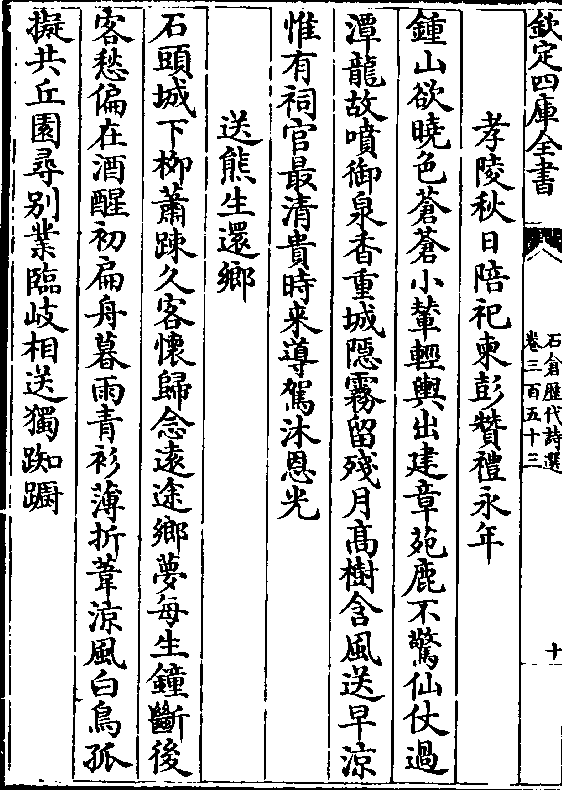 欽定四庫全書
石倉歷代詩選
卷三百五十三
十
孝陵秋日陪祀柬彭贊禮永年
鍾山欲曉色蒼蒼小輦輕輿出建章苑鹿不驚仙仗過
潭龍故噴御泉香重城隠霧留殘月髙樹含風送早涼
惟有祠官最清貴時来導駕沐恩光
送熊生還鄉
石頭城下栁蕭踈久客懷歸念遠途鄉夢每生鐘斷後
客愁偏在酒醒初扁舟暮雨青衫薄折葦涼風白鳥孤
擬共丘園尋别業臨岐相送獨踟躕